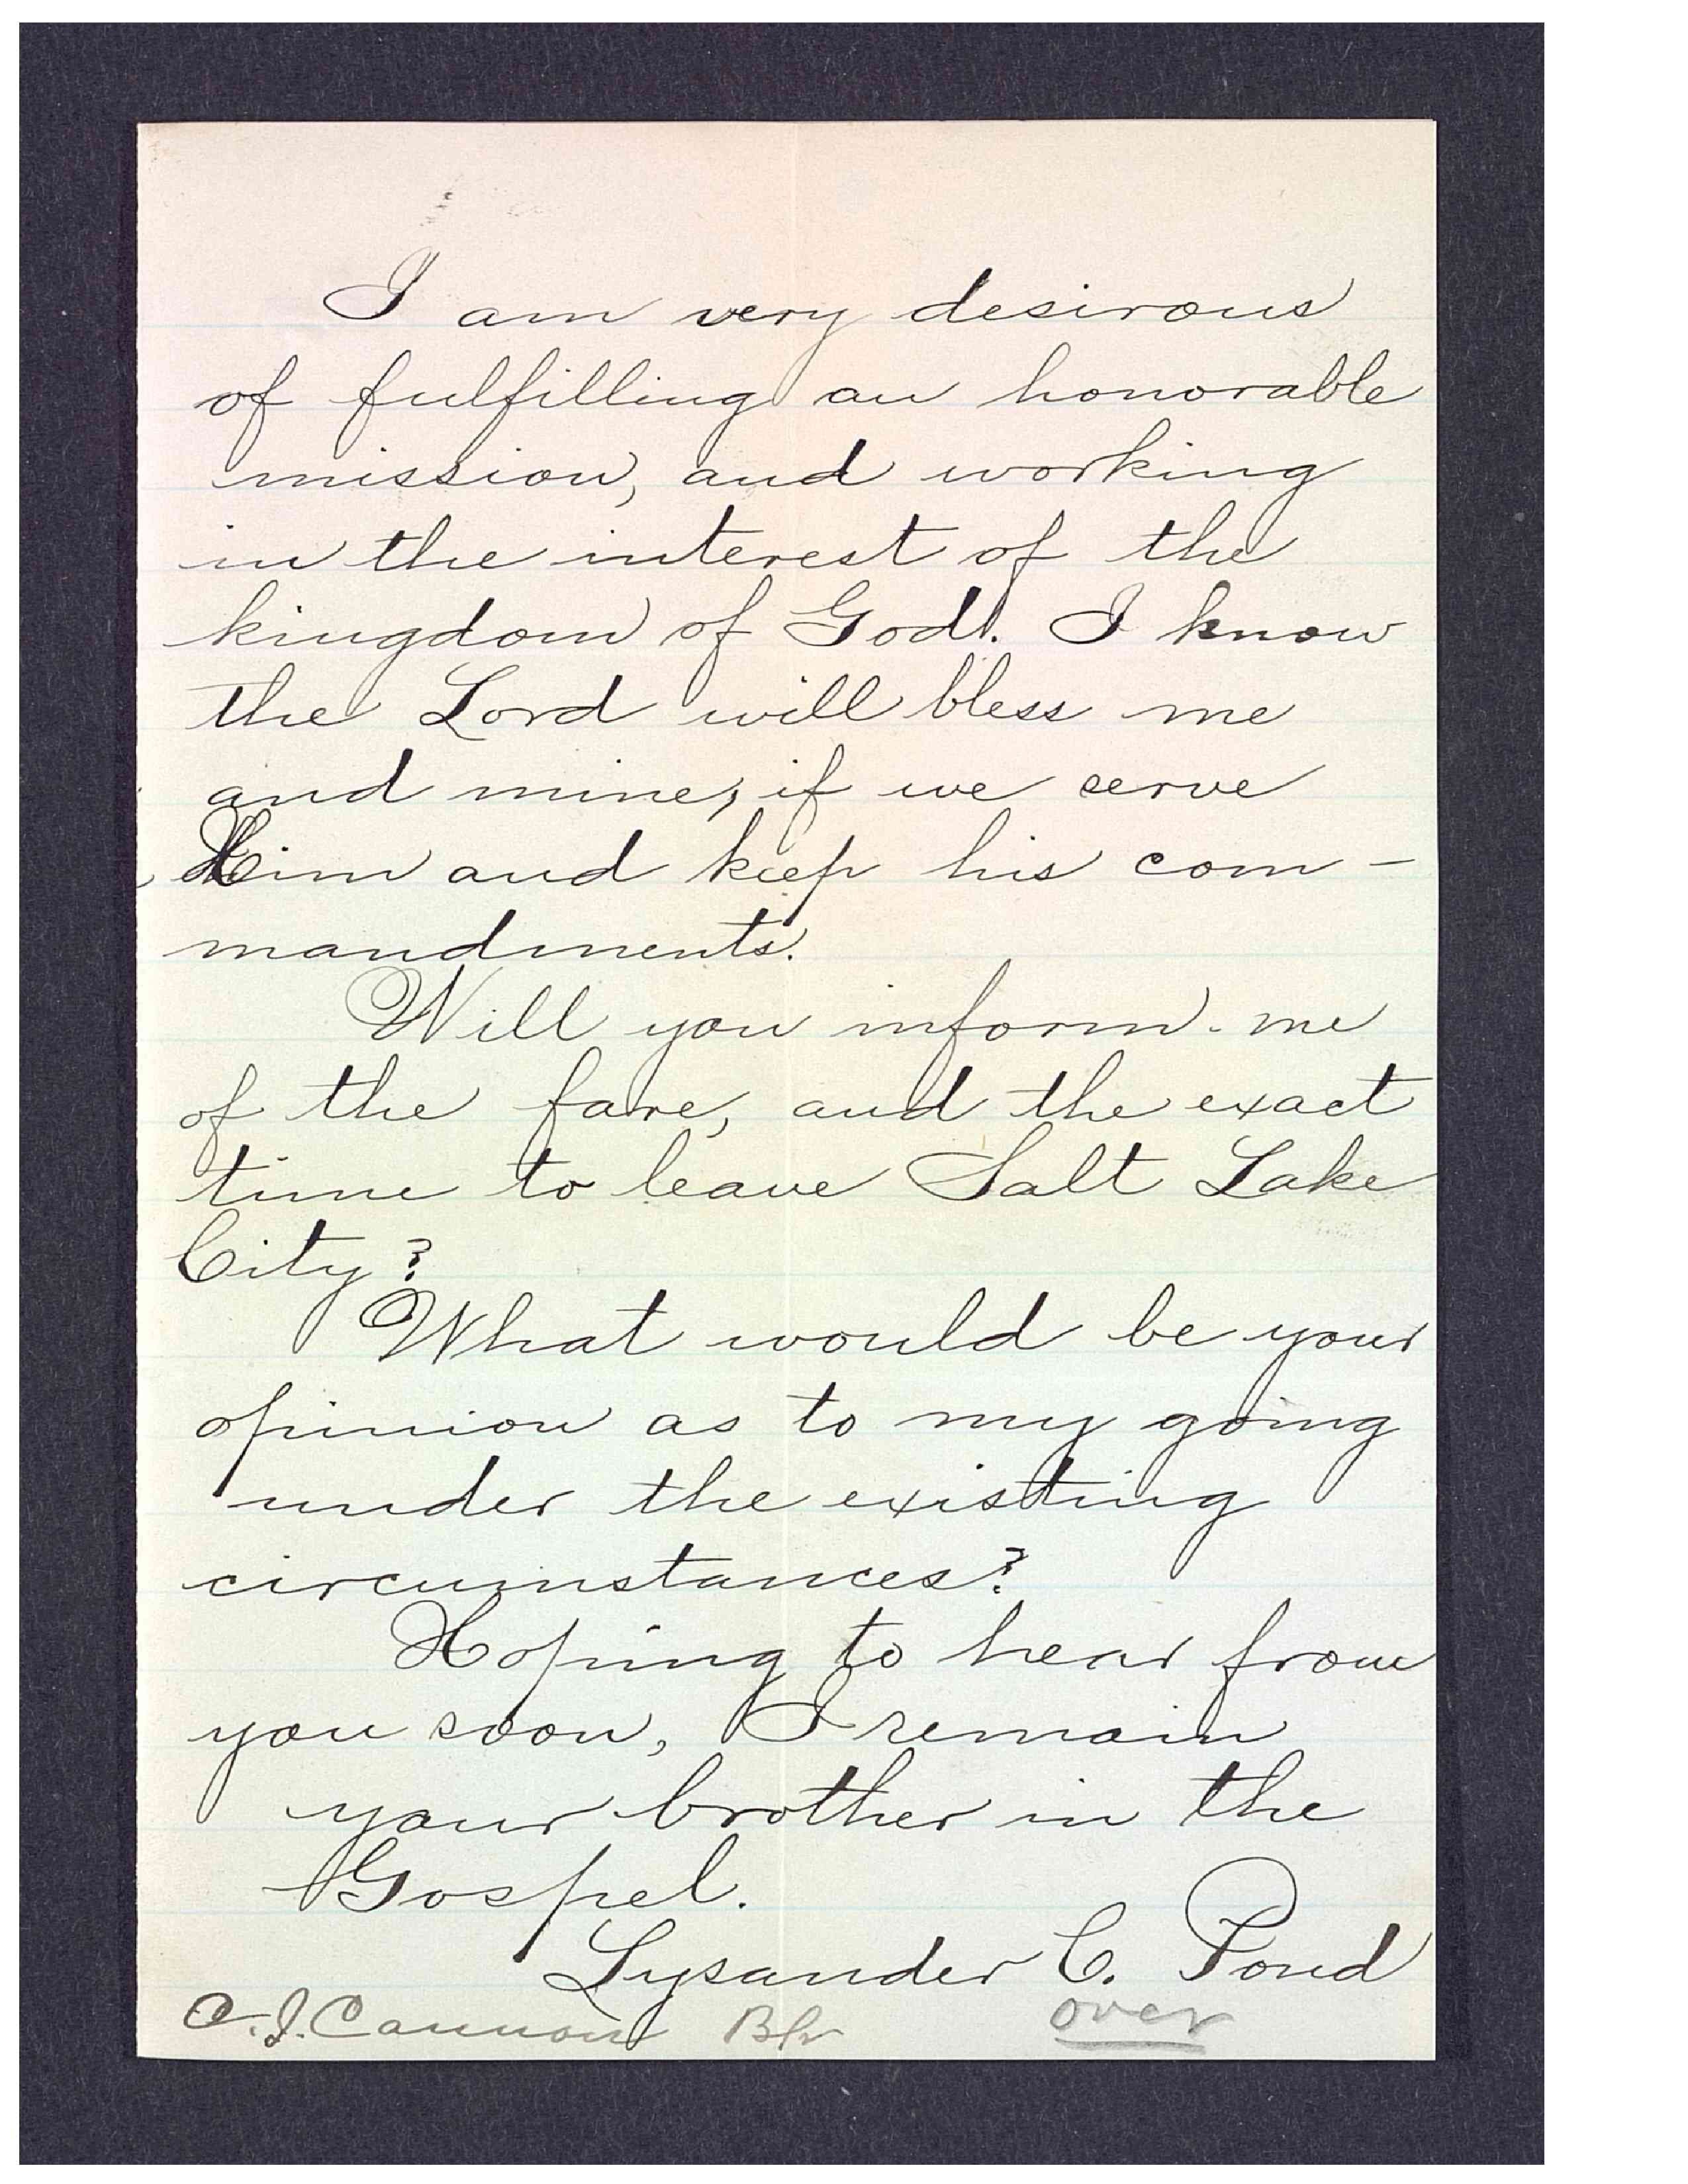 I am very desirous
of fulfilling an honorable
mission, and working
in the interest of the
kingdom of God. I know
the Lord will bless me
and mine, if we serve
Him and keep his com-
mandments.
Will you inform me
of the fare, and the exact
time to leave Salt Lake
City?
What would be your
opinion as to my going
under the existing
circumstances?
Hoping to hear from
you soon, I remain
your brother in the
Gospel.
Lysander C. Pond
C. J. Cannon Bp
over